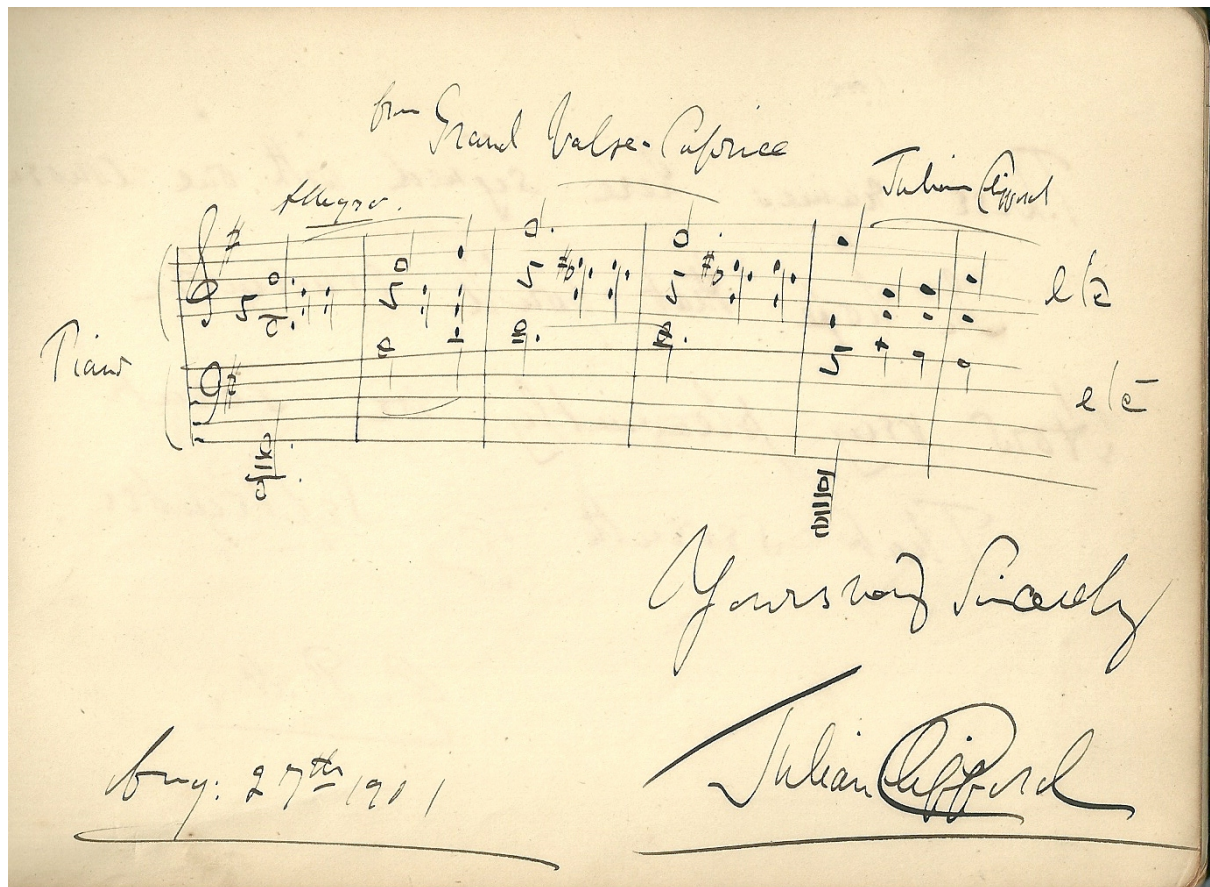 from Grand Valse-Caprice
Julian Clifford
Allegro.
Piano
etc
etc
Yours very Sincerely
Julian Clifford
Aug: 27th 1901